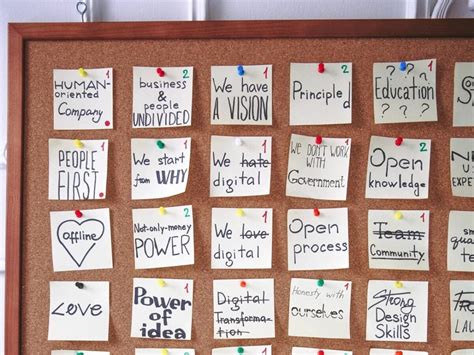 1
HUMAN-
oriented
Company
2
business
& people
UNDIVIDED
1
We have
A VISION
2
Principled
2
Education
? ? ?
? ? ?
1
PEOPLE
FIRST
2
We start
from WHY
1
We hate
digital
1
We DON'T WORK
WITH
Government
2
Open
knowledge
Offline
2
Not-only-money
POWER
1
We love
digital
1
Open
process
1
Team
Community.
Love
1
Power of
idea
1
Digital
Transforma-
tion
Honesty with
ourselves
Strong
Design
Skills